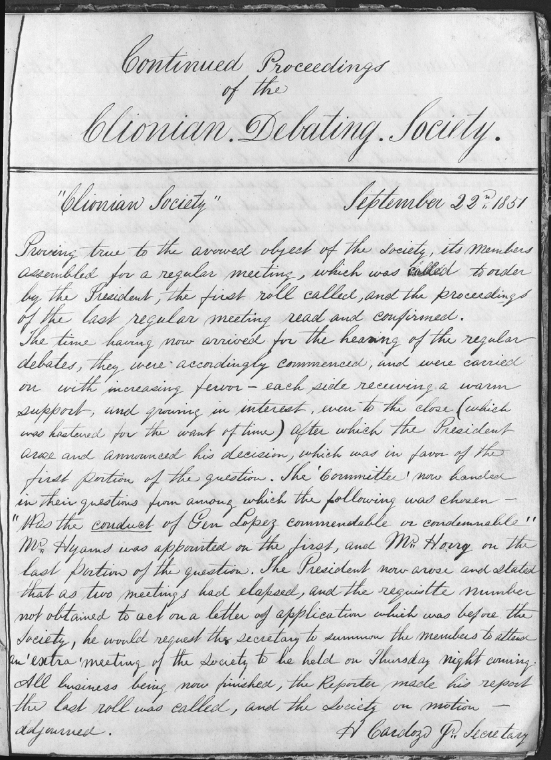 Continued Proceedings
of the
Clionian. Debating. Society.
"Clionian Society" September 22nd. 1851
Proving true to the avowed object of the Society, its members
assembled for a regular meeting, which was called to order
by the President, the first roll called, and the proceedings
of the last regular meeting read and confirmed.
The time having now arrived for the hearing of the regular
debates, they were accordingly commenced, and were carried
on with increasing fervor – each side receiving a warm
support, and growing in interest, even to the close (which
was hastened for the want of time) after which the President
arose and announced his decision, which was in favor of the
first portion of the question. The 'Committee' now handed
in their questions from among which the following was chosen –
"Was the conduct of Gen Lopez commendable or condemnable"
Mr. Hyams was appointed on the first, and Mr. Horry on the
last portion of the question. The President now arose and stated
that as two meetings had elapsed, and the requisite number
not obtained to act on a letter of application which was before the
Society, he would request the secretary to summon the members to attend
an 'extra' meeting of the Society to be held on Thursday night coming.
All business being now finished, the Reporter made his report
the last roll was called, and the Society on motion –
adjourned. Cardozo Jr. Secretary